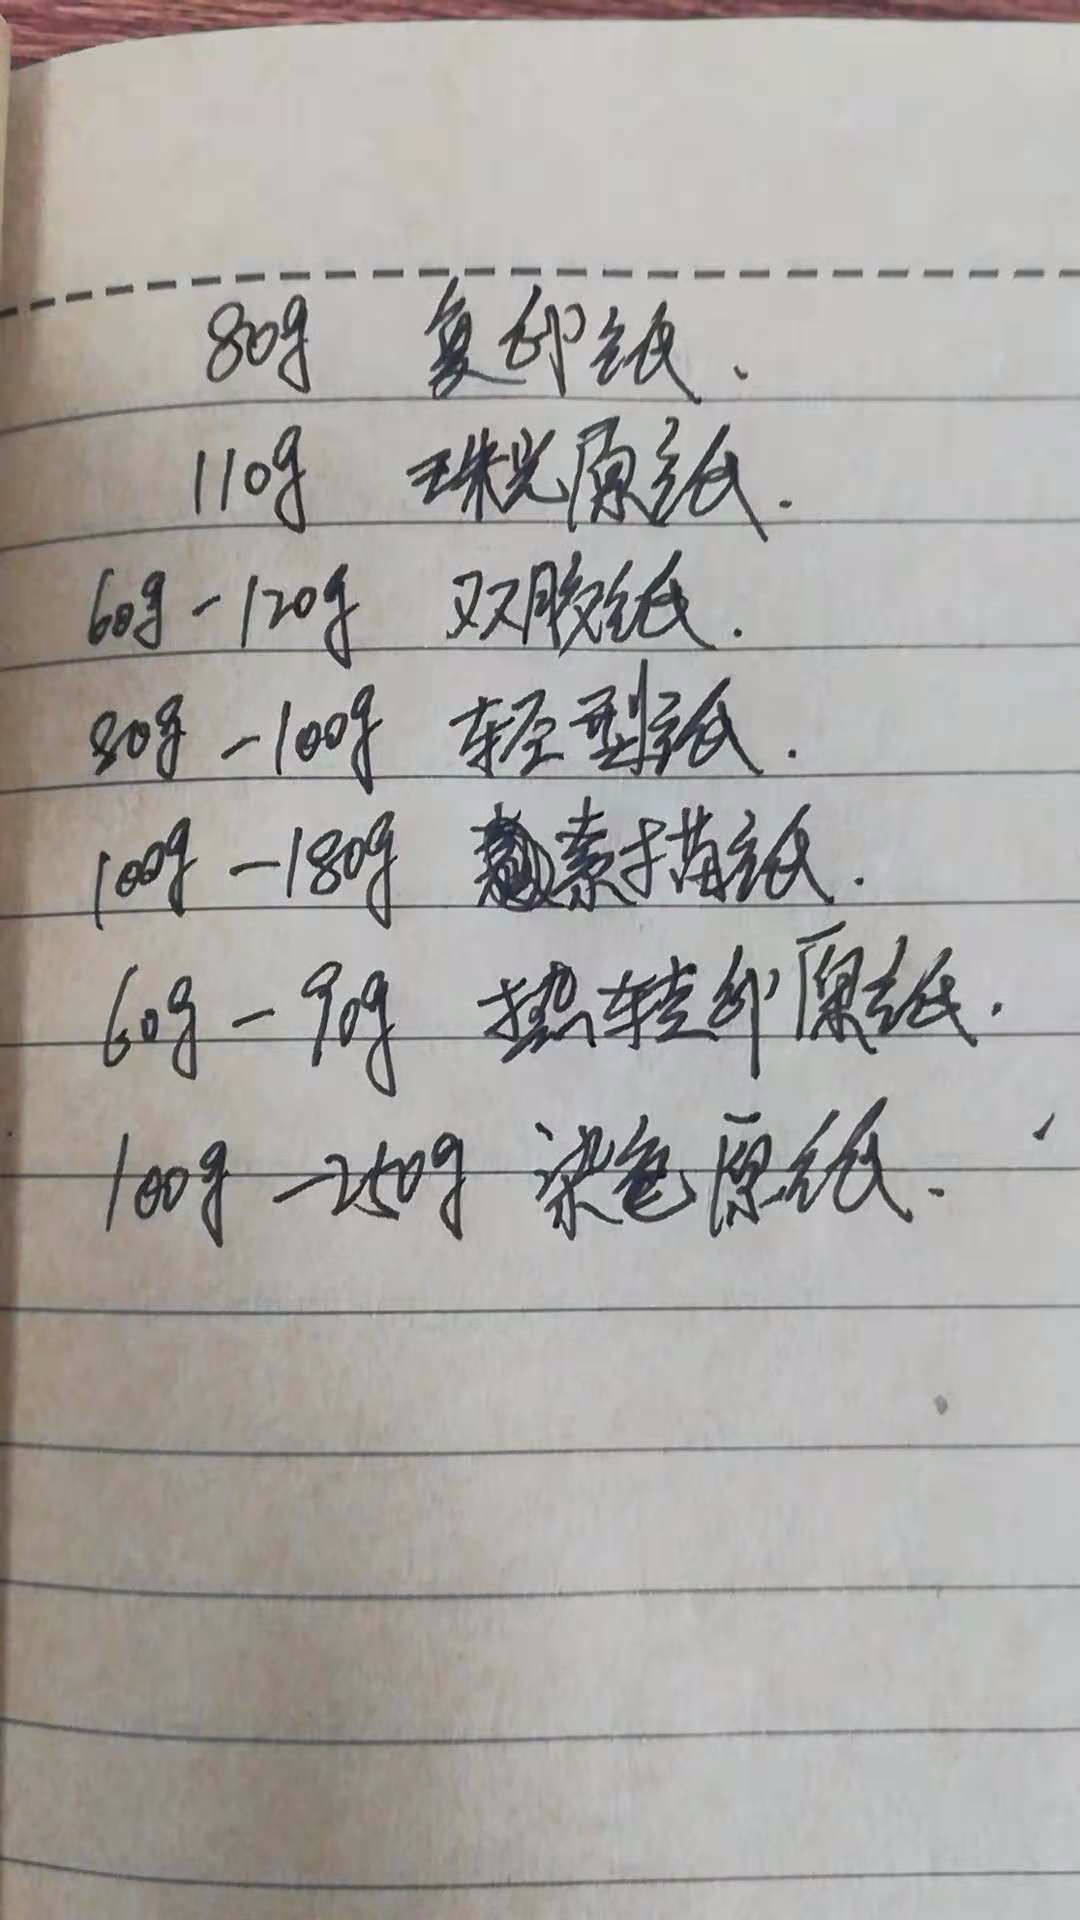 80g 复印纸.
110g 珠光原纸.
60g-120g 双胶纸.
80g-100g 轻型纸.
100g-180g 素描纸.
60g-90g 热转印原纸.
100g-250g 染色原纸.